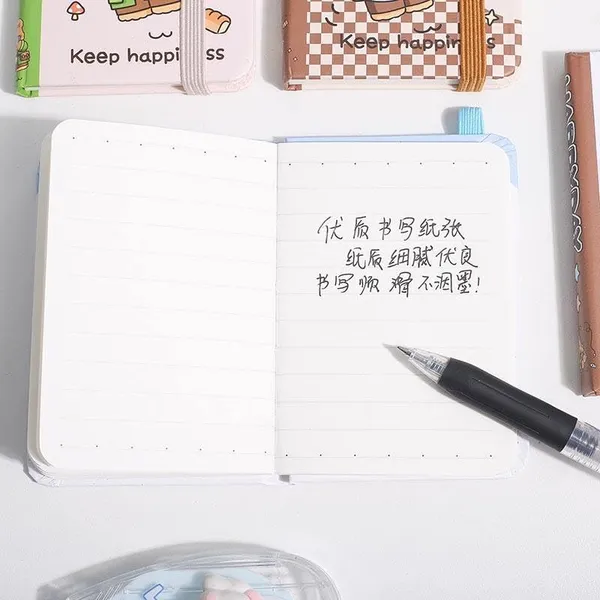 Keep happiness
Keep happiness
优质书写纸张
纸质细腻优良
书写顺滑不洇墨!